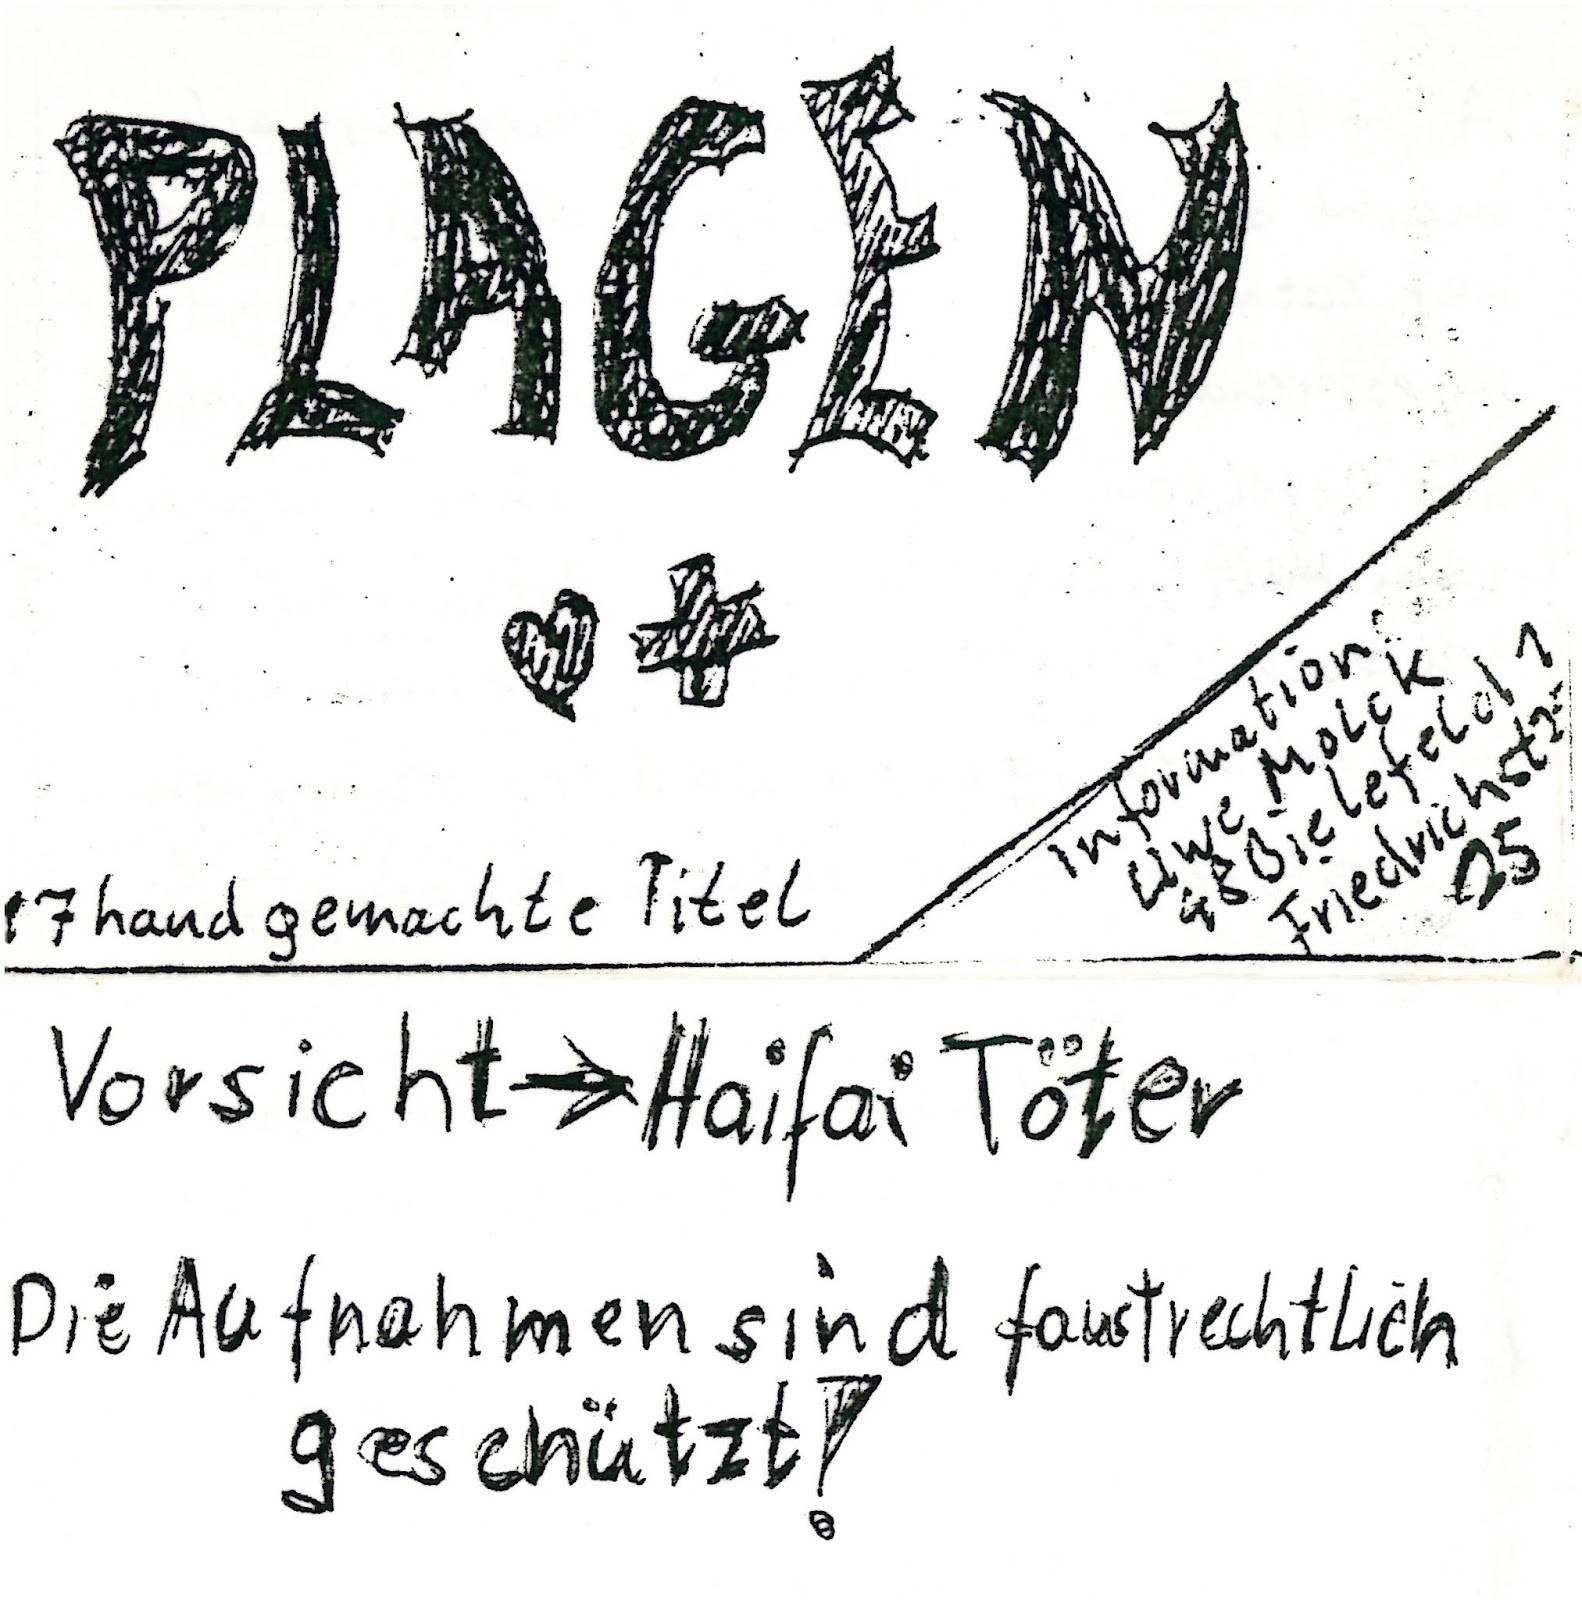 PLAGEN
17 handgemachte Titel
Information:
Uwe Molck
48 Bielefeld 1
Friedrichstr.
25
Vorsicht → Haifai Töter
Die Aufnahmen sind faustrechtlich
geschützt!